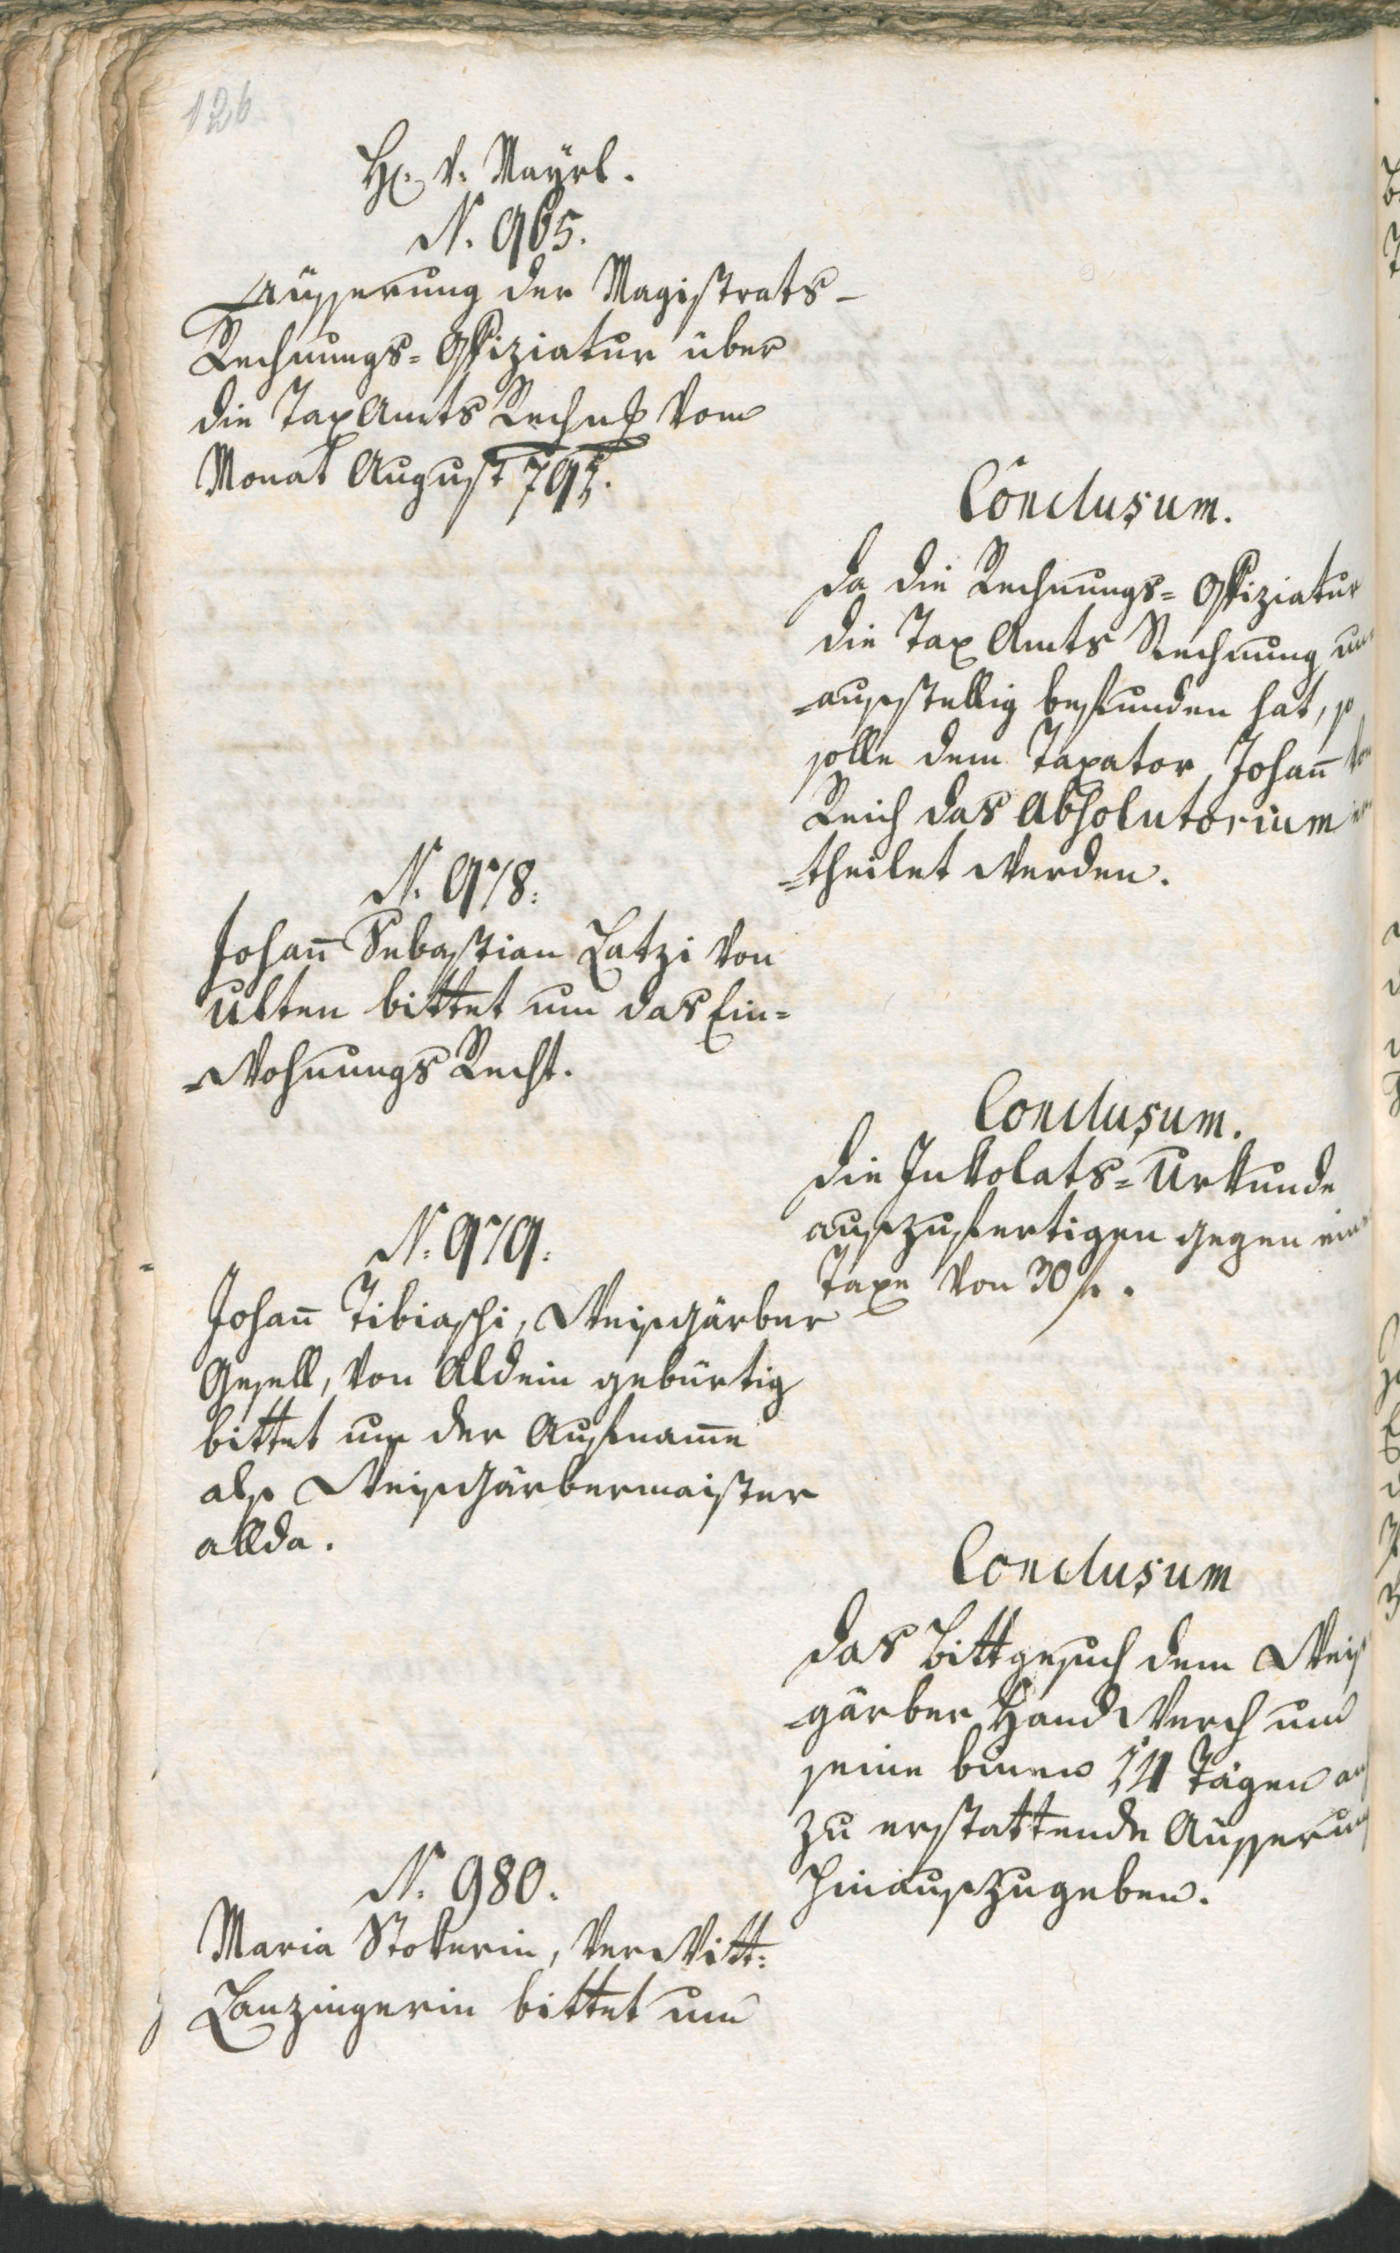 126
H: v: Mayrl.
N. 965.
Äusserung der Magistrats-
Rechnungs= Offiziatur über
die Tax Amts Rechng vom
Monat August 795.
Conclusum.
Da die Rechnungs= Offiziatur
die Tax Amts Rechnung un
=ausstellig befunden hat, so
solle dem Taxator Johann von
Reich das Absolutorium er
=theilet werden.
N. 978.
Johann Sebastian Latzi von
Ulten bittet um das Ein=
=wohnungs Recht.
Conclusum.
Die Inkolats= Urkunde
auszufertigen gegen eine
Taxe von 30 f.
N. 979.
Johann Tibiaschi, Weisgärber
Gesell, von Aldein gebürtig
bittet um der Aufnamme
als Weisgärbermaister
allda.
Conclusum
Das Bittgesuch dem Weis
=gärber Handwerch um
seine binen 14 Tägen an
zu erstattende Äusserung
hinauszugeben.
N. 980.
Maria Stokerin, verwitt:
Lanzingerin bittet um